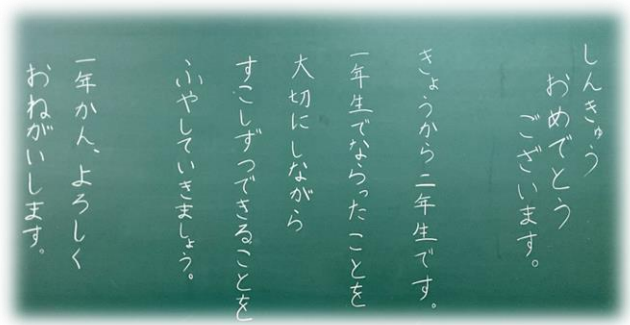 しんきゅう
おめでとう
ございます。
きょうから二年生です。
一年生でならったことを
大切にしながら
すこしずつできることを
ふやしていきましょう。
一年かん、よろしく
おねがいします。